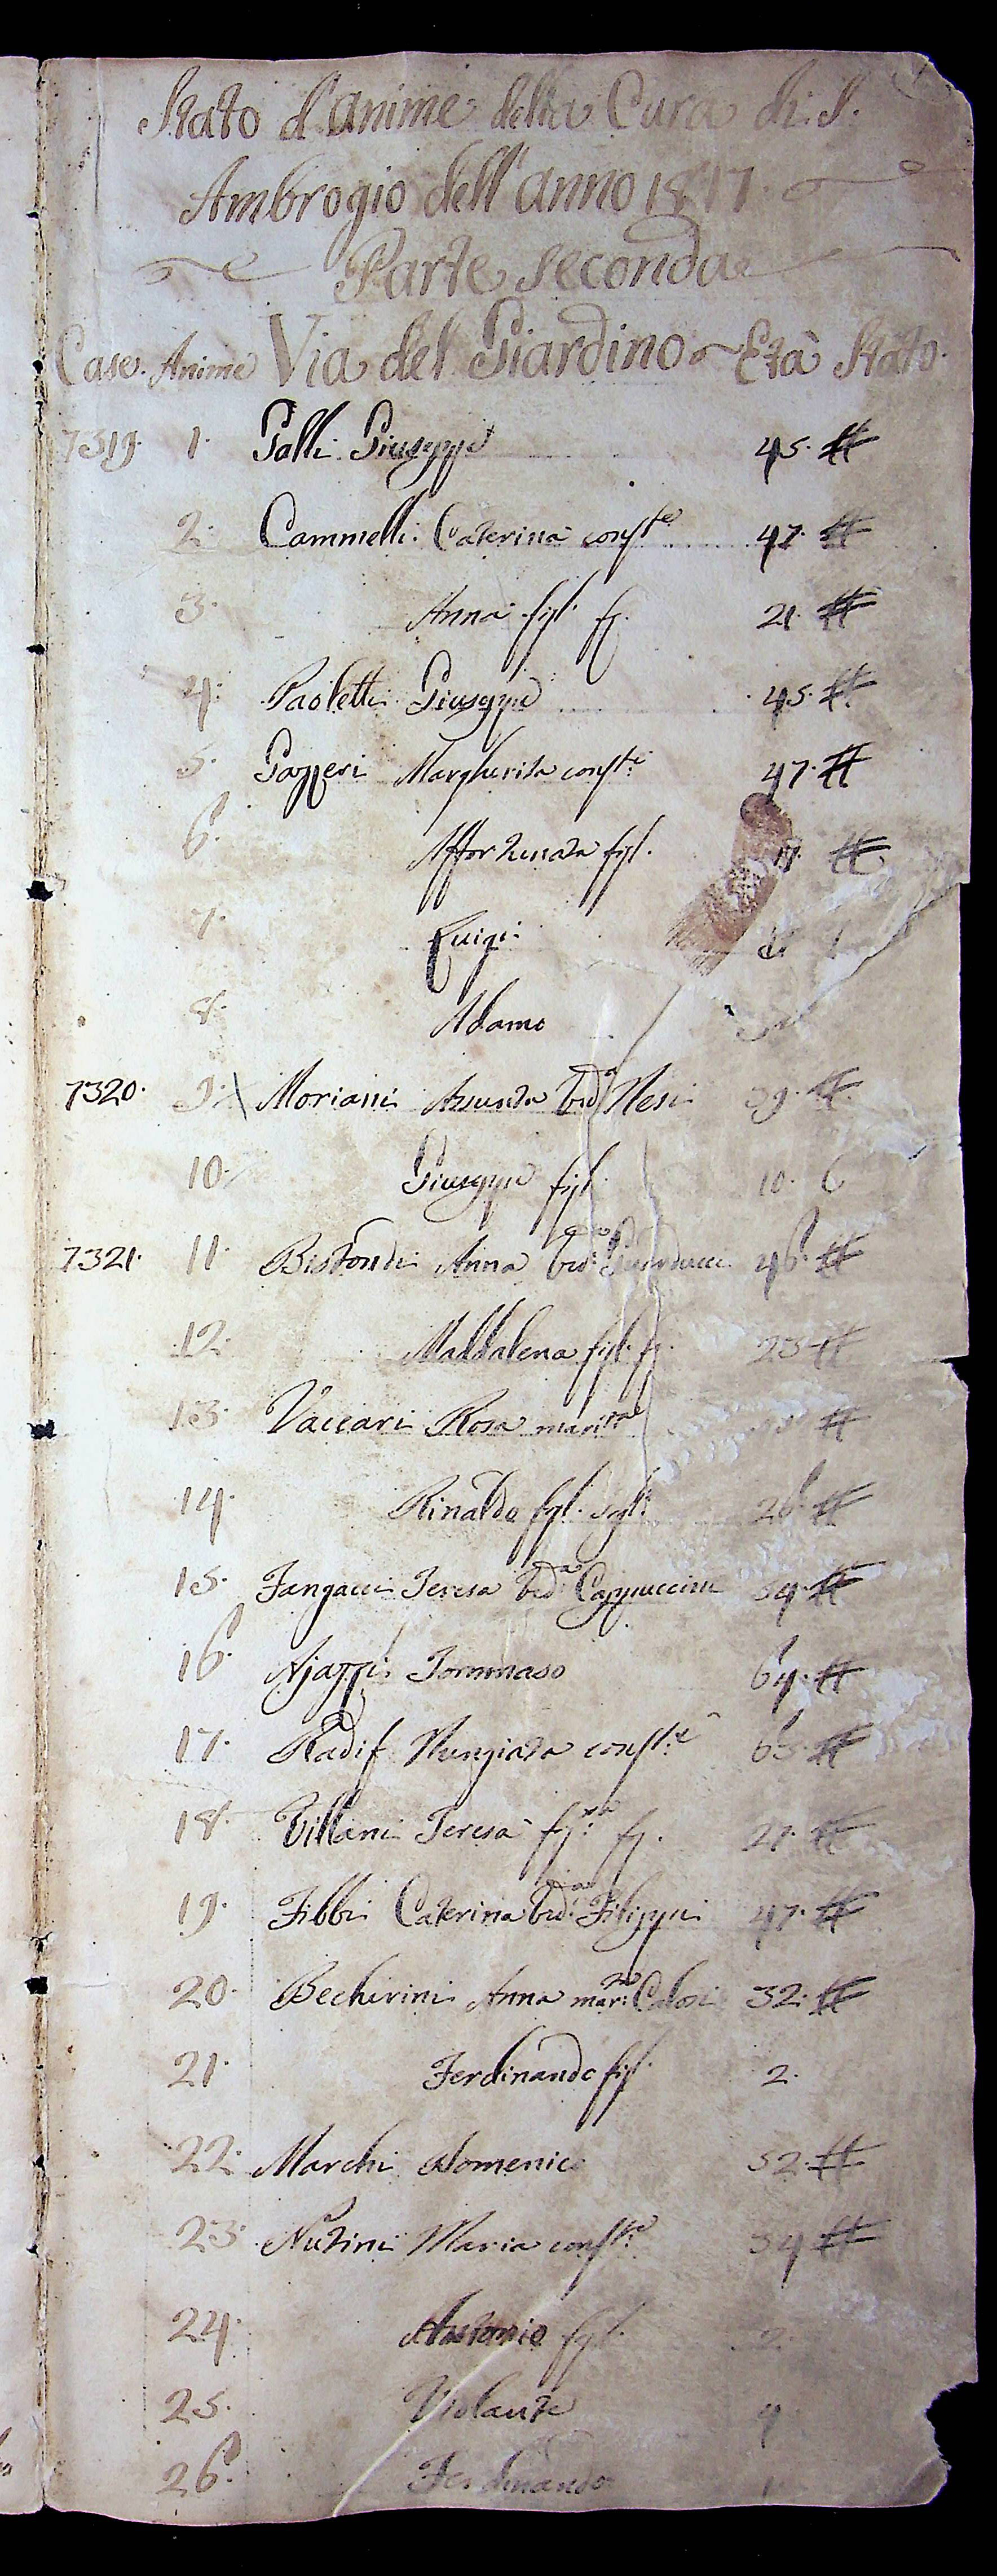 Stato d'anime della Cura di S.
Ambrogio dell'anno 1817
Parte Seconda
Case. Anime Via del Giardino Età Stato.
7319. 1. Galli Giuseppe 45. #
2. Cammelli Caterina conste 47. #
3. Anna figl. fj. 21. #
4. Paoletti Giuseppe 45. #
5. Gazzeri Margherita conste 47. #
6. Affortunata figl. #
7. Luigi
8. Adamo
7320. 9. Moriani Assunta veda Nesi 39. #
10. Giuseppe figl. 10. C
7321. 11. Bistondi Anna veda Guarducci 46. #
12. Maddalena figl. fj. 23 #
13. Vaccari Rosa marita #
14. Rinaldo figl. sgli 26. #
15. Fangacci Teresa veda Cappuccini 54 #
16. Ajazzi Tommaso 64. #
17. Radif Nunziata conste 63. #
18. Villani Teresa fj. 27. #
19. Fibbi Caterina veda Filippi 47. #
20. Becherini Anna mar: Calosi 32. #
21. Ferdinando figl. 2.
22. Marchi Domenico 52. #
23. Nutini Maria conste 34 #
24. Antonio figl. 2.
25. Violante 9
26. Ferdinando